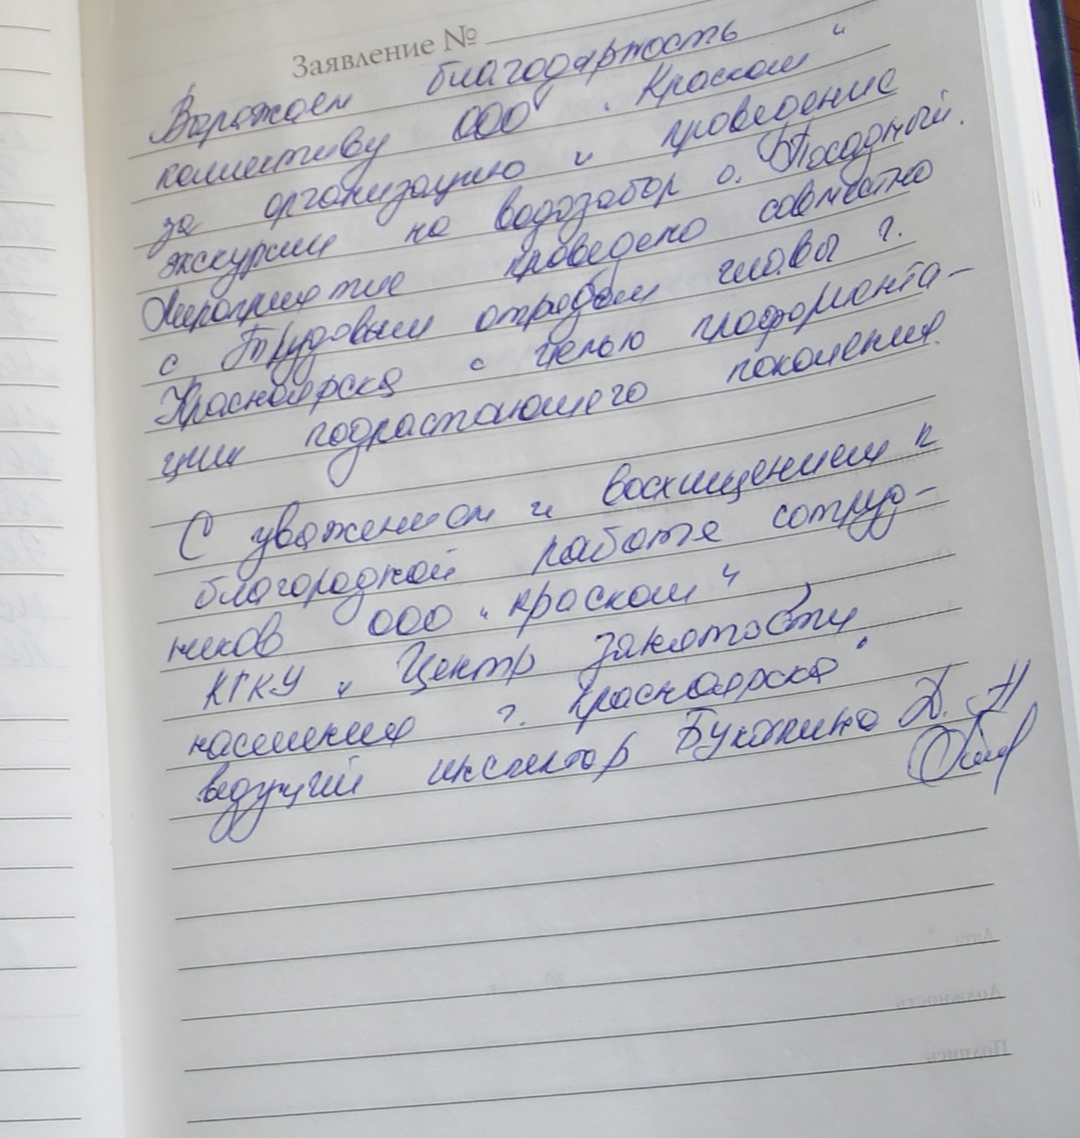 Заявление №
Выражаем благодарность
коллективу ООО "Краском"
за организацию и проведение
экскурсии на водозабор о. Посадный.
Мероприятие проведено совместно
с Трудовым отрядом главы г.
Красноярска с целью профориента-
ции подрастающего поколения.
С уважением и восхищением к
благородной работе сотруд-
ников ООО "Краском"
КГКУ "Центр занятости
населения г. Красноярска"
ведущий инспектор Буканина Д. Н
Дата
Должность
Подпись